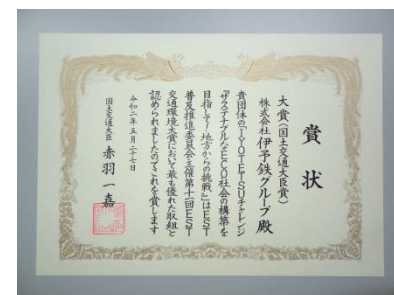 賞状
大賞(国土交通大臣賞)
株式会社伊予鉄グループ殿
貴団体の「IYOTETSUチャレンジ
『サステナブルなECO社会の構築を
目指して』~地方からの挑戦~」はEST
普及推進委員会主催第十一回EST
交通環境大賞において最も優れた取組と
認められましたのでこれを賞します
令和二年五月二十七日
国土交通大臣 赤羽一嘉